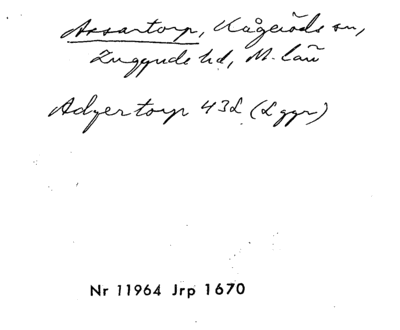 Assartorp, Kågeröds sn,
Luggude hd, M. län
Adzertorp 43L (Lggr)
Nr 11964 Jrp 1670